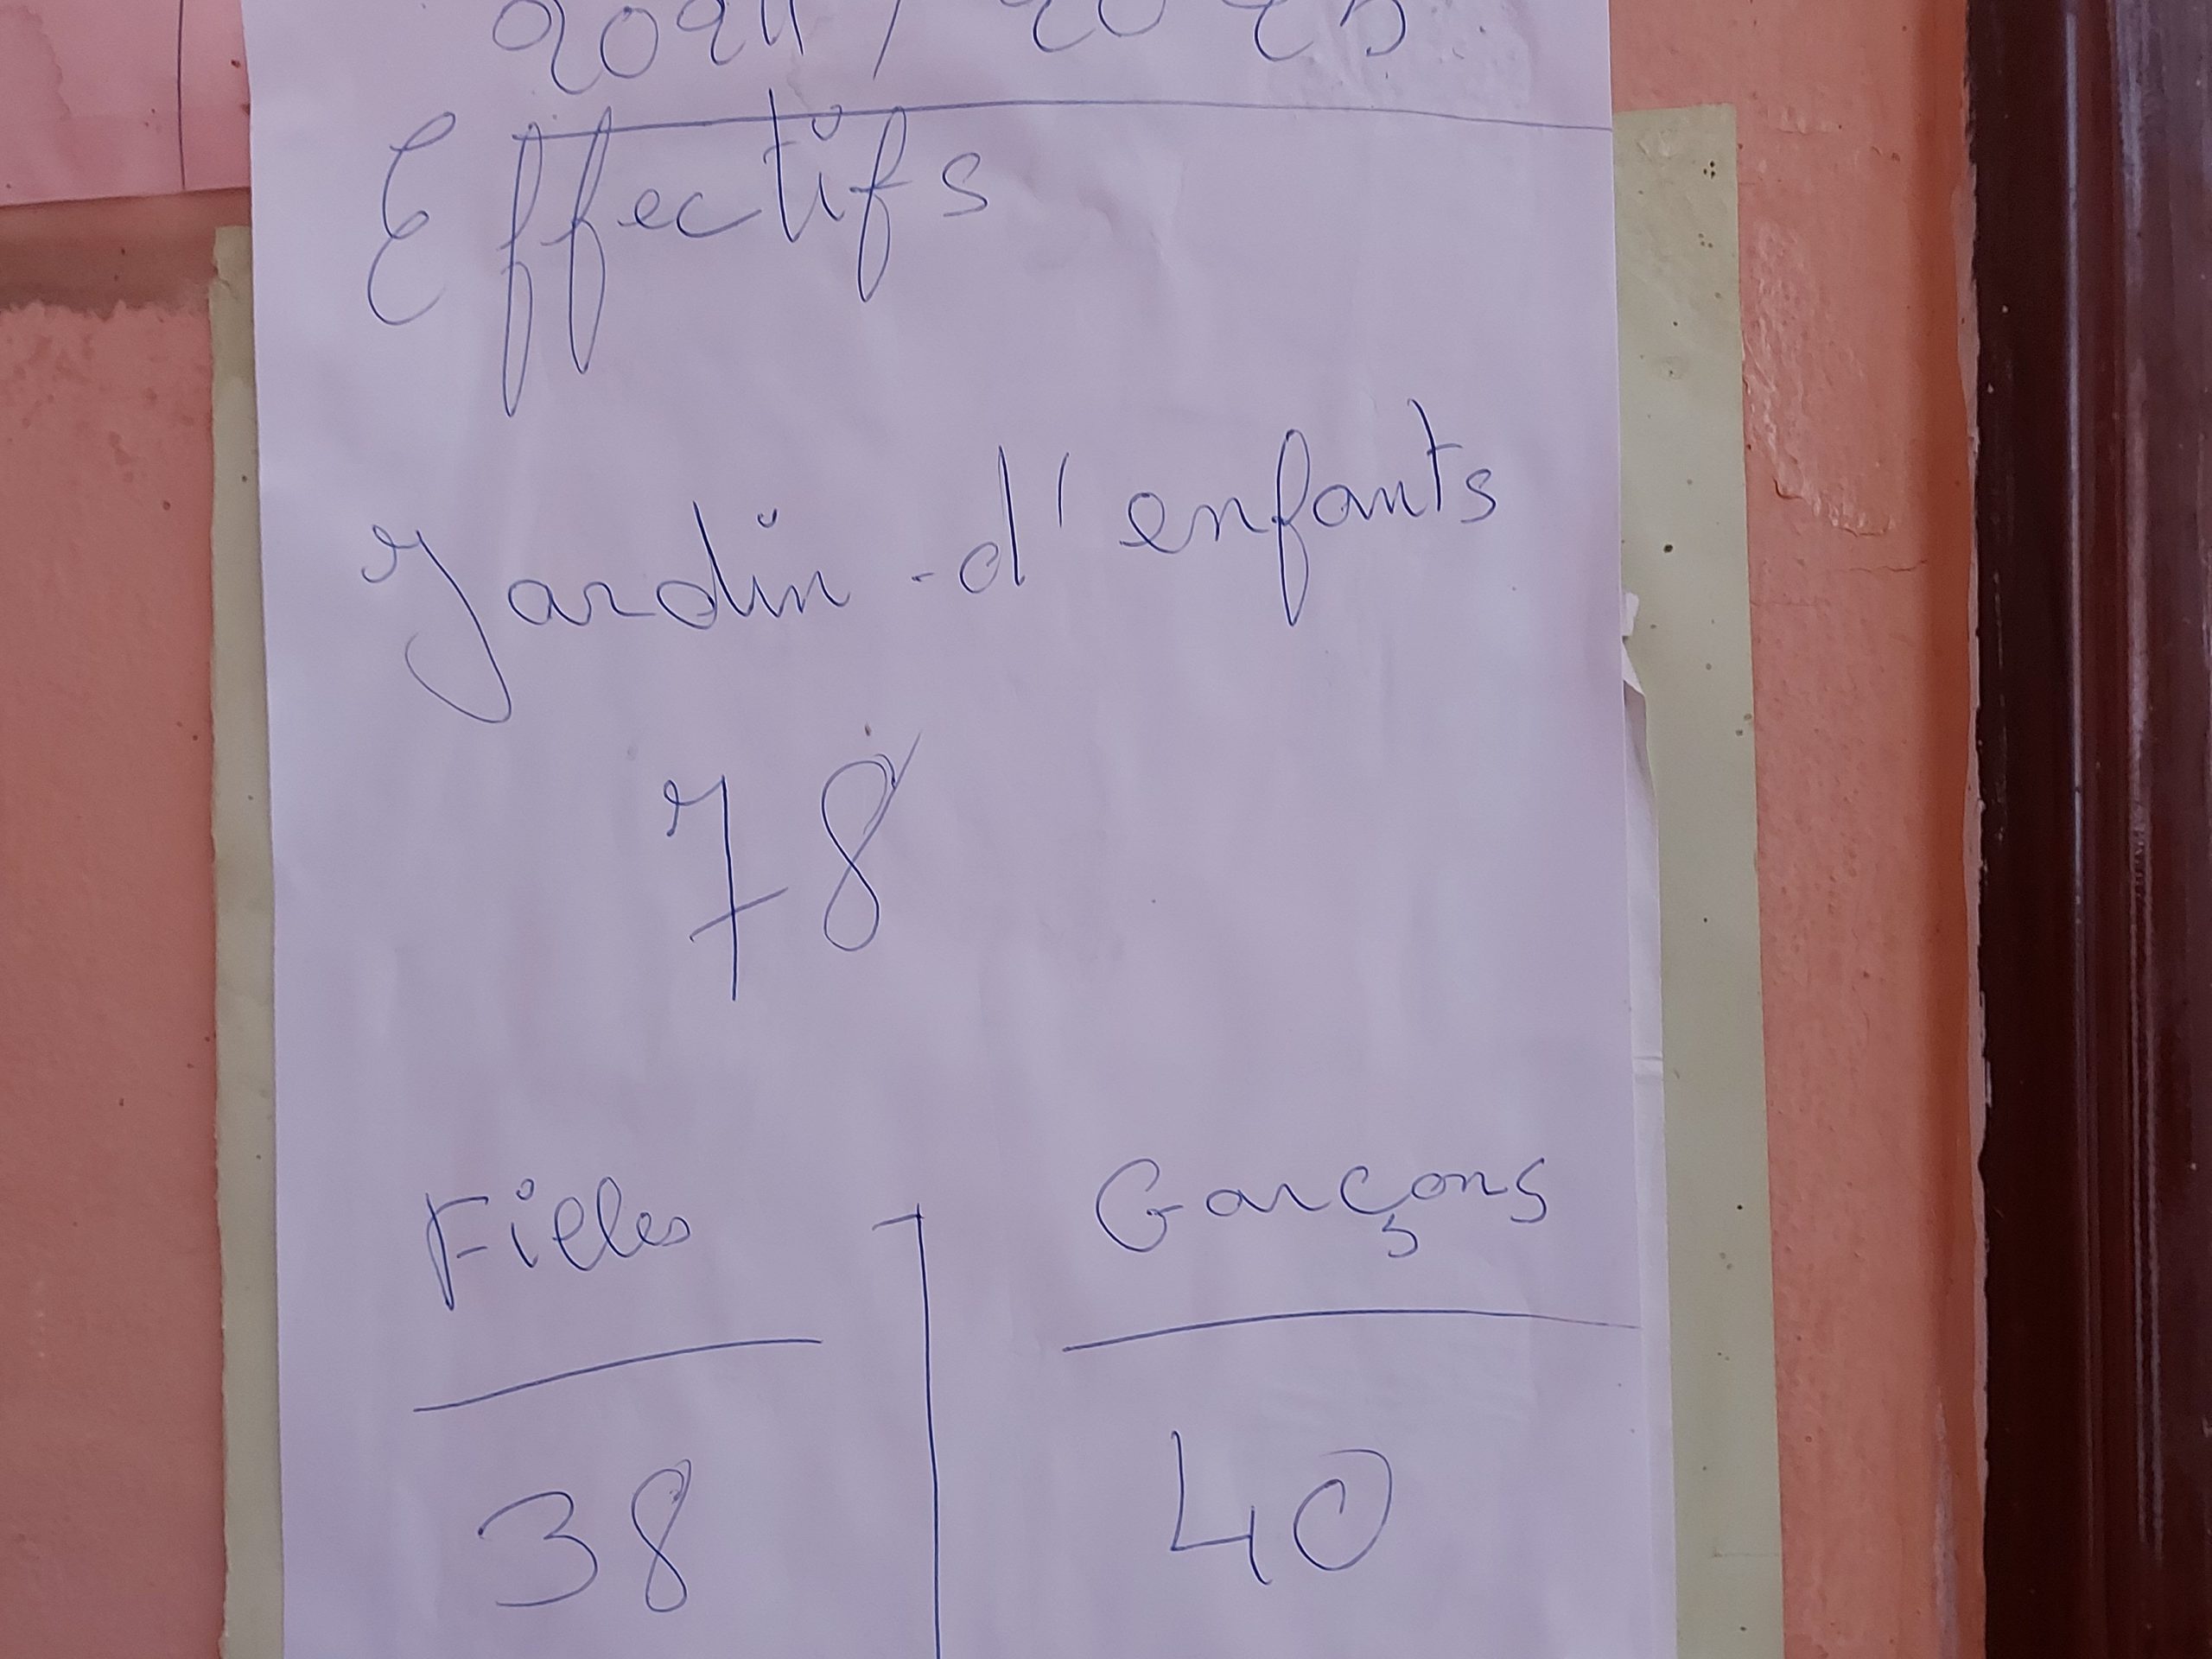 2024 / 2025
Effectifs
Jardin-d'enfants
78
Filles Garçons
38 40